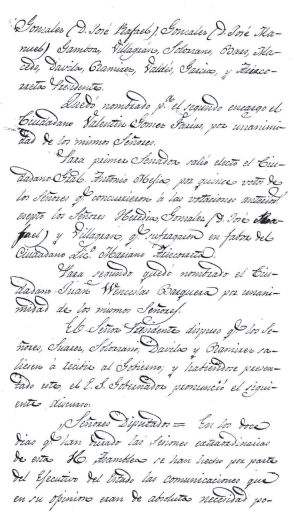 Gonzalez (D. José Rafael) Gonzalez (D. José Ma-
nuel) Gamboa, Villagran, Solorzano, Baes, Ma-
cedo, Davila, Ramirez, Valdés, Garcia, y
Presidente.
Quedó nombrado p.ª el segundo encargo el
Ciudadano Valentin Gomez Farias, por unanimi-
dad de los mismos Señores.
Para primer Senador salió electo el Ciu-
dadano Gral. Antonio Mejia por quince votos de
los Señores q.e concurrieron á las votaciones anteriores
esepto los Señores Heredia, Gonzalez (D. José Ra-
fael) y Villagran, q.e sufragaron en favor del
Ciudadano Lic.º Mariano
Para segundo quedó nombrado el Ciu-
dadano Juan Wenceslao Barquera por unani-
midad de los mismos Señores.
El Señor Presidente dispuso q.e los Se-
ñores, Suares, Solorzano, Davila y Ramirez sa-
liesen á recibir al Gobierno; y habiendose presen-
tado este, el E. S. Gobernador pronunció el sigui-
ente discurso.
"Señores Diputados = En los doce
dias q.e han durado las sesiones extraordinarias
de esta H. Asamblea se han hecho por parte
del Ejecutivo del Estado las comunicaciones que
en su opinion eran de absoluta necesidad po-